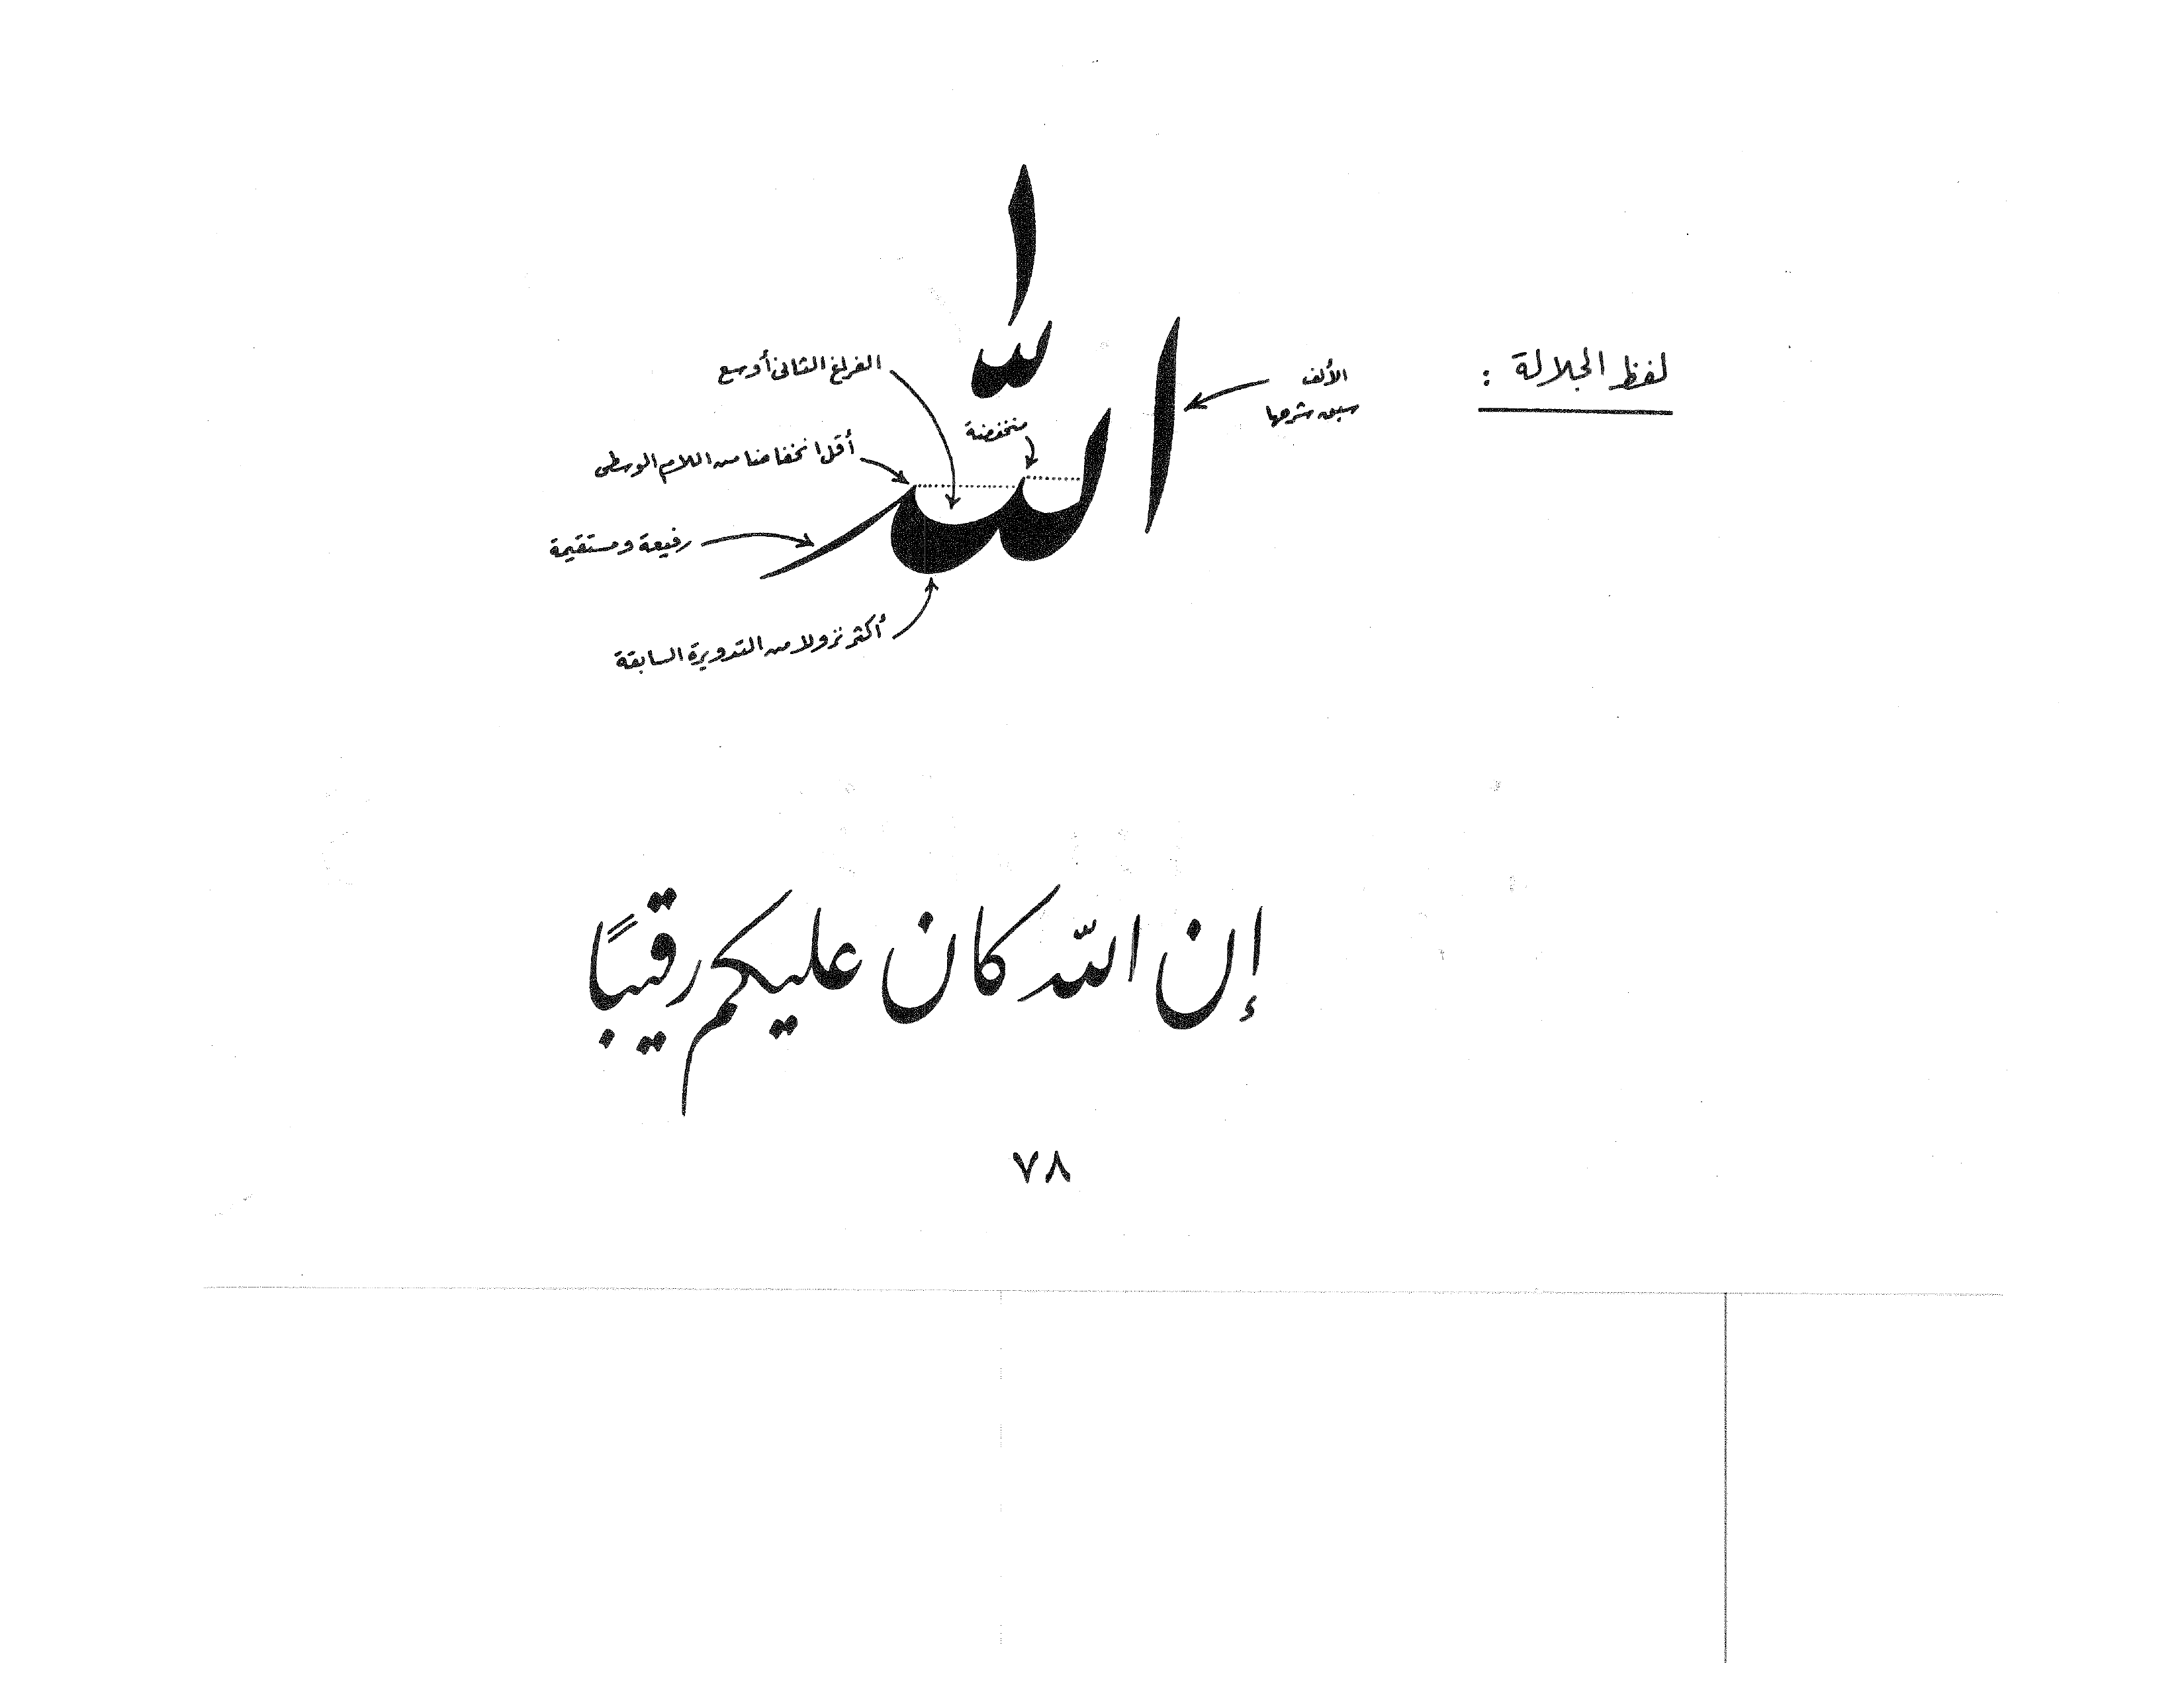 لفظ الجلالة :
الألف
سبق شرحها
الله
منخفضة
الفراغ الثانى أوسع
أقل انخفاضا من اللام الوسطى
رفيعة ومستقيمة
أكثر نزولا من التدويرة السابقة
إن الله كان عليكم رقيبًا
٧٨